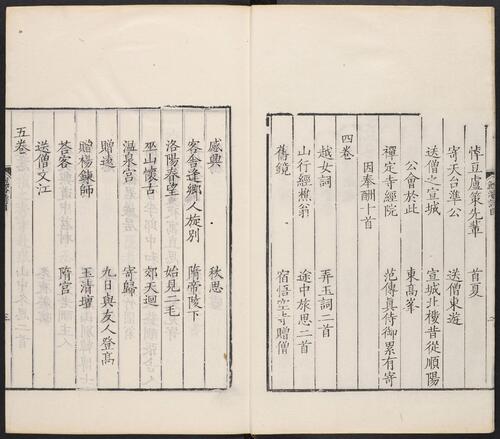 悼豆盧策先軰　首夏
寄天台準公　送僧東遊
送僧之宣城　宣城北樓昔從順陽
公會於此　東高峯
禪定寺經院　范傳真侍御累有寄
因奉酬十首
四卷
越女詞　弄玉詞二首
山行經樵翁　途中旅思二首
舊鏡　宿悟空寺贈僧
感興　秋思
客舎逢鄉人旋别　隋帝陵下
洛陽春望　始見二毛
巫山懷古　郊天迴
温泉宫　寄歸
贈遠　九日與友人登高
贈楊鍊師　玉清壇
荅客　隋宫
送僧文江
五卷